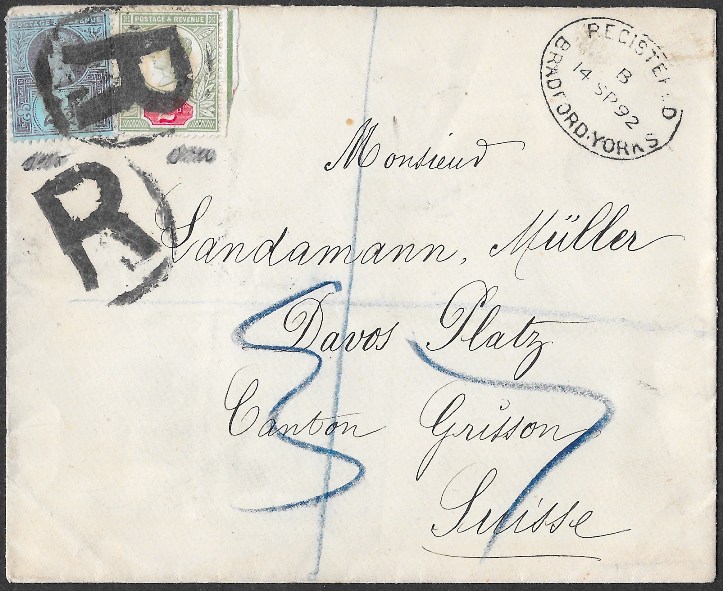 POSTAGE & REVENUE
POSTAGE & REVENUE
R
R
REGISTERED
B
14 SP 92
BRADFORD·YORKS
Monsieur
Landamann, Müller
Davos Platz
Canton Grisson
Suisse
37